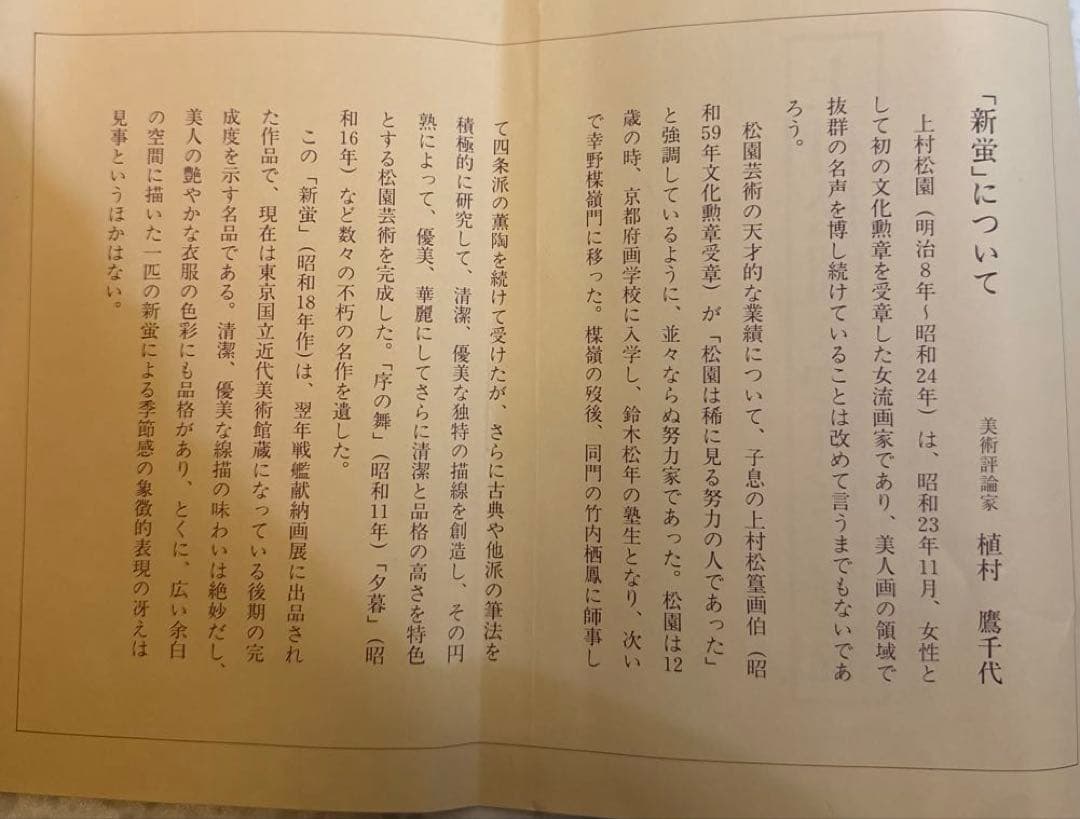 「新蛍」について
美術評論家 植村 鷹千代
上村松園（明治8年～昭和24年）は、昭和23年11月、女性と
して初の文化勲章を受章した女流画家であり、美人画の領域で
抜群の名声を博し続けていることは改めて言うまでもないであ
ろう。
松園芸術の天才的な業績について、子息の上村松篁画伯（昭
和59年文化勲章受章）が「松園は稀に見る努力の人であった」
と強調しているように、並々ならぬ努力家であった。松園は12
歳の時、京都府画学校に入学し、鈴木松年の塾生となり、次い
で幸野楳嶺門に移った。楳嶺の歿後、同門の竹内栖鳳に師事し
て四条派の薫陶を続けて受けたが、さらに古典や他派の筆法を
積極的に研究して、清潔、優美な独特の描線を創造し、その円
熟によって、優美、華麗にしてさらに清潔と品格の高さを特色
とする松園芸術を完成した。「序の舞」（昭和11年）「夕暮」（昭
和16年）など数々の不朽の名作を遺した。
この「新蛍」（昭和18年作）は、翌年戦艦献納画展に出品され
た作品で、現在は東京国立近代美術館蔵になっている後期の完
成度を示す名品である。清潔、優美な線描の味わいは絶妙だし、
美人の艶やかな衣服の色彩にも品格があり、とくに、広い余白
の空間に描いた一匹の新蛍による季節感の象徴的表現の冴えは
見事というほかはない。